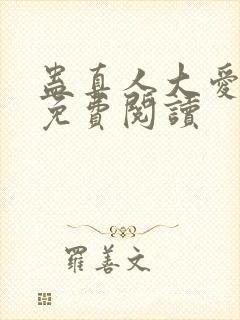 蛊真人大愛
免費閱讀
羅善文